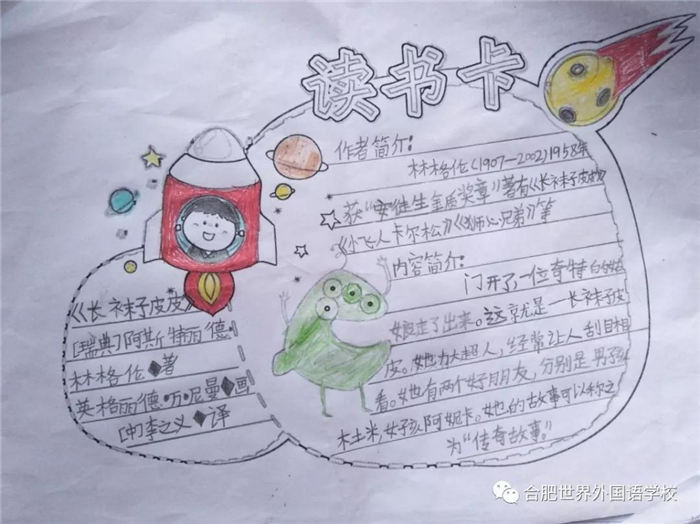 读书卡
作者简介:
林格伦(1907—2002)1958年
获“安徒生金质奖章”著有《长袜子皮皮》
《小飞人卡尔松》《狮心兄弟》等
内容简介:
门开了一位奇特的姑
娘走了出来。这就是—长袜子皮
皮。她力大超人,经常让人刮目相
看。她有两个好朋友,分别是男孩
杜米,女孩阿妮卡。她的故事可以称之
为“传奇故事。”
《长袜子皮皮》
[瑞典]阿斯特丽德·
林格伦◆著
英格丽德·万·尼曼◆画
[中]李之义◆译
合肥世界外国语学校